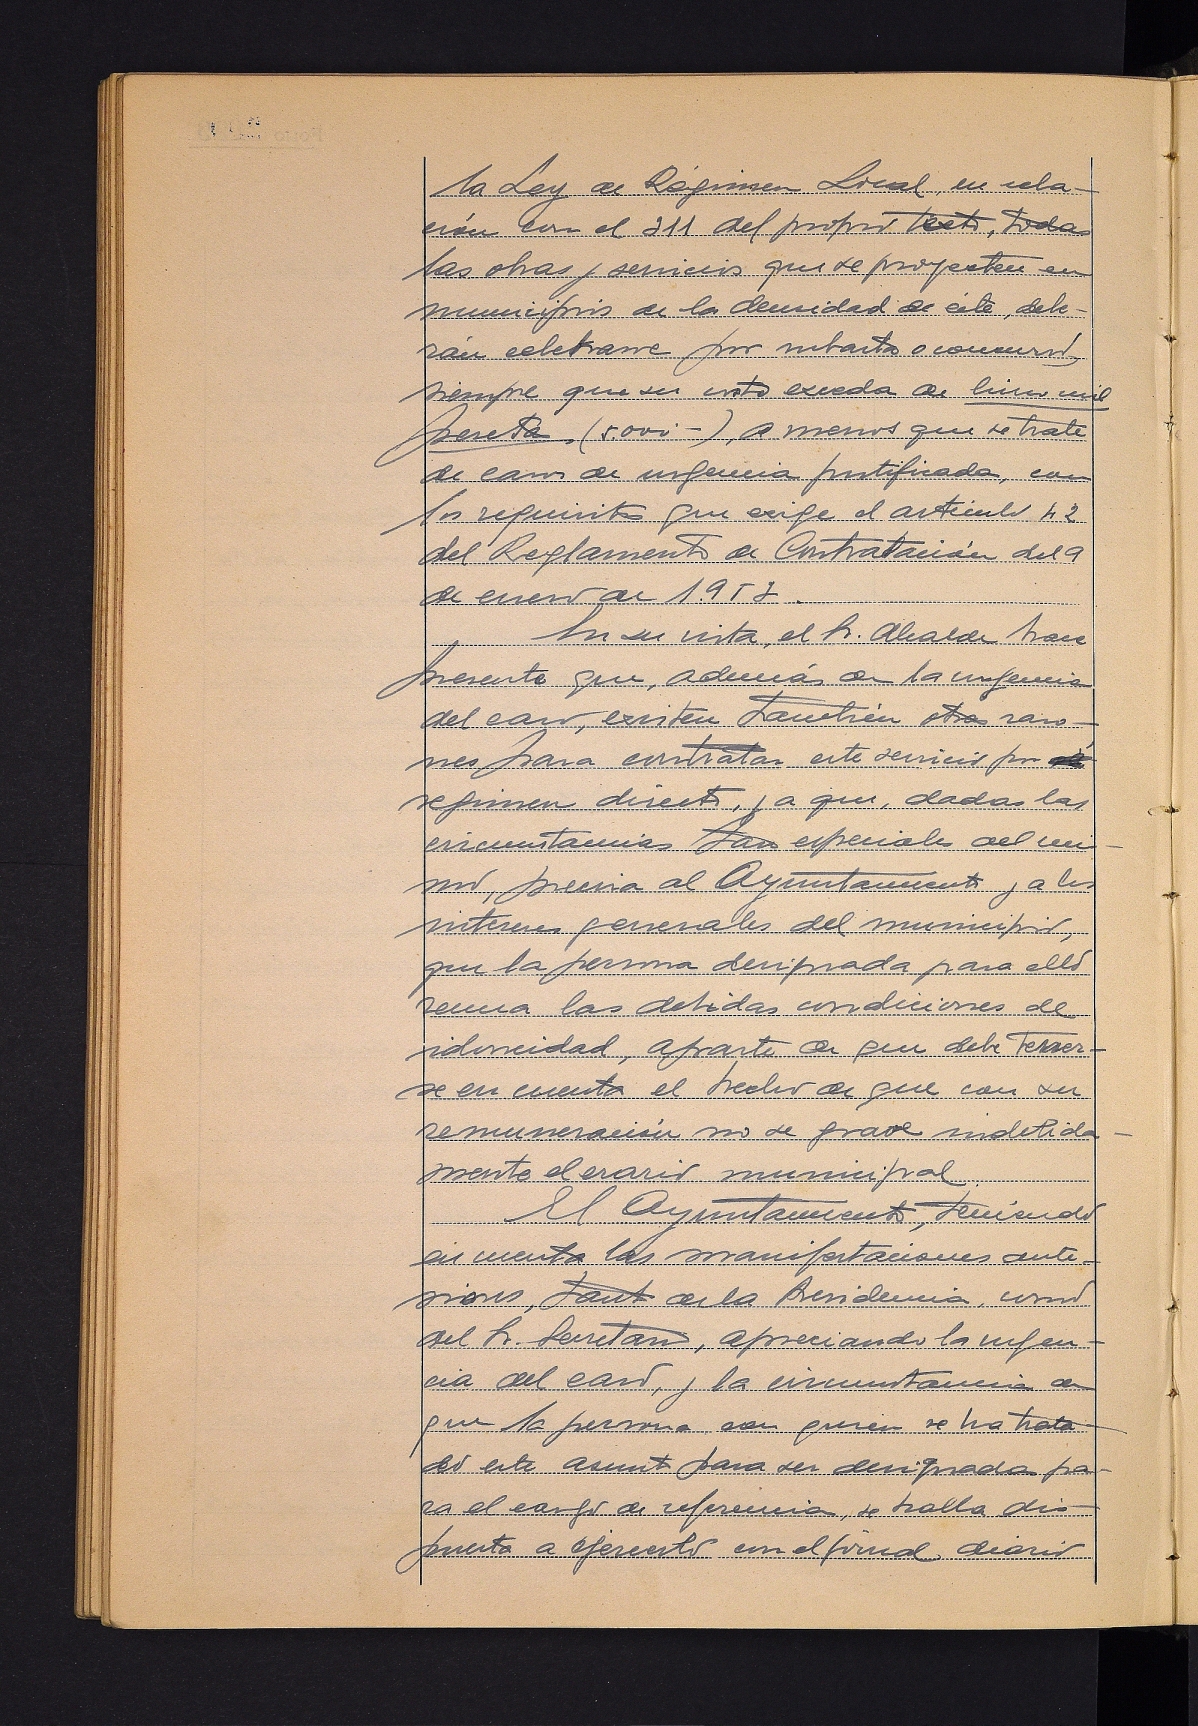 la Ley de Régimen Local en rela-
ción con el 311 del propio texto, todas
las obras y servicios que se proyecten en
municipios de la densidad de éste, debe-
rán celebrarse por subasta o concurso,
siempre que su costo exceda de cinco mil
pesetas, (5.000-), a menos que se trate
de casos de urgencia justificada, con
los requisitos que exige el artículo 42
del Reglamento de Contratación del 9
de enero de 1.953.
En su vista, el Sr. Alcalde hace
presente que, además de la urgencia
del caso, existen también otras razo-
nes para contratar este servicio por
regimen directo, ya que, dadas las
circunstancias tan especiales del mis-
mo, precisa al Ayuntamiento y a los
intereses generales del municipio,
que la persona designada para ello
reuna las debidas condiciones de
idoneidad, aparte de que debe tener-
se en cuenta el hecho de que con su
remuneración no se grave indebida-
mente el erario municipal.
El Ayuntamiento, teniendo
en cuenta las manifestaciones ante-
riores, tanto de la Presidencia, como
del Sr. Secretario, apreciando la urgen-
cia del caso, y la circunstancia de
que la persona con quien se ha trata-
do este asunto para ser designada pa-
ra el cargo de referencia, se halla dis-
puesta a ejercerlo con el jornal diario